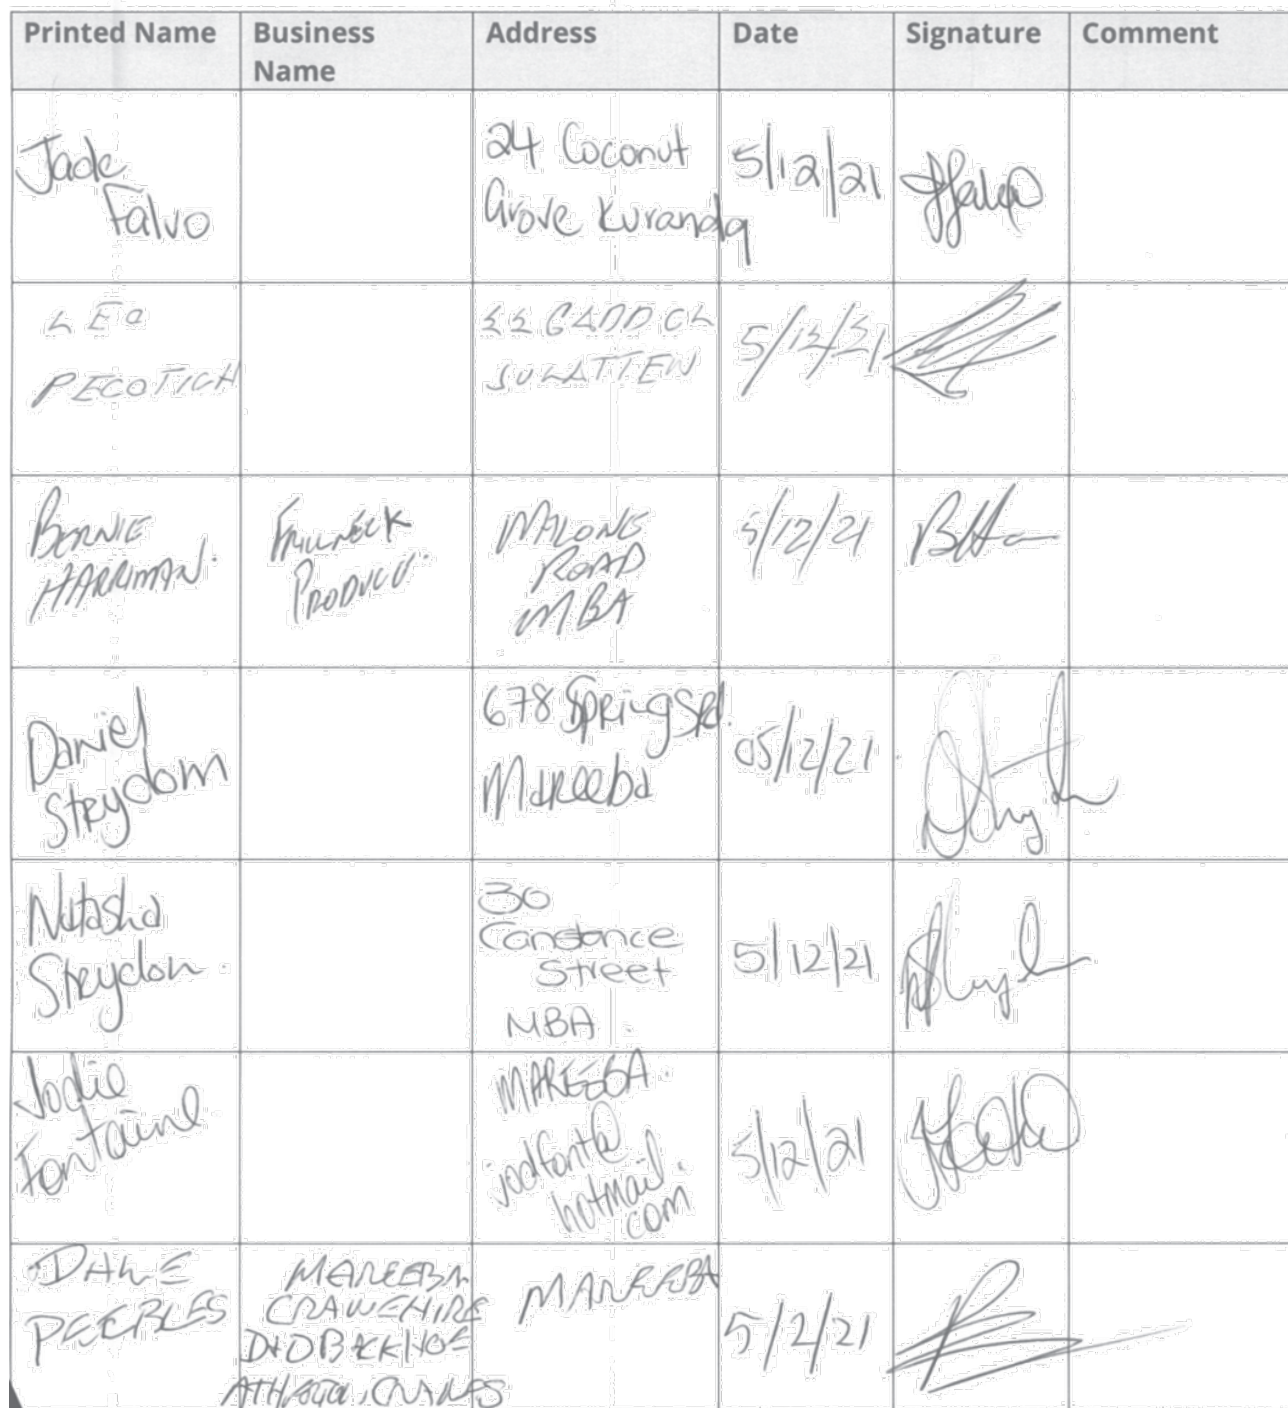 Printed Name Business Name Address Date Signature Comment
Jade Falvo 24 Coconut Grove Kuranda 5/12/21
LEO PECOTICH JULATTEN 5/12/21
BERNIE HARRIMAN. FRILLNECK PRODUCE. MALONE ROAD MBA 5/12/21
Daniel Strydom 678 Springs Rd. Mareeba 05/12/21
Natasha Strydom. 30 Constance Street MBA. 5/12/21
Jodie Fontaine MAREEBA. jodfont@hotmail.com 5/12/21
DALE PEEBLES MAREEBA CRANEHIRE D+D BACKHOE CRANES MAREEBA 5/2/21